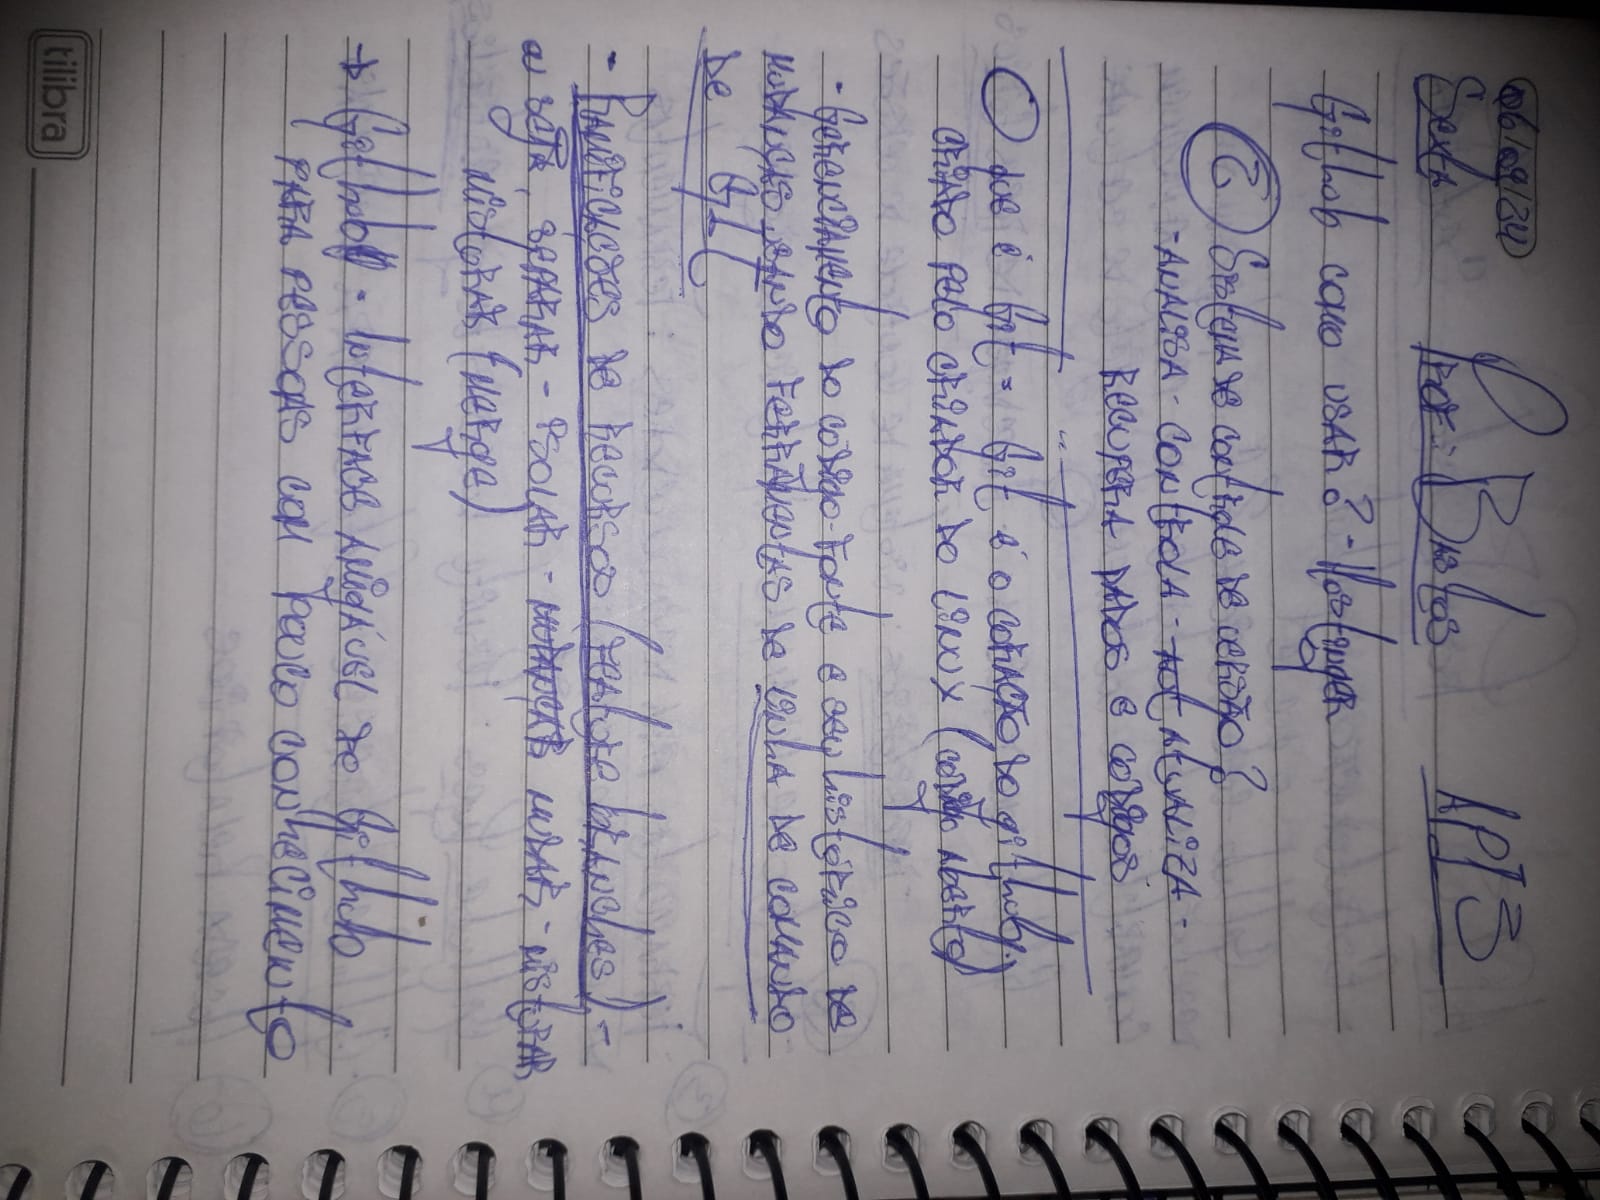 06/09/24
Sexta Prof: Bastos API 3
Github como usar? - Hostinger
Sistema de controle de versão?
- Analisa - controla - Atualiza -
recupera dados e códigos
O que é Git = Git é o coração do github.
criado pelo criador do Linux (código aberto)
- Gerenciamento do código-fonte e seu histórico de
mudanças usando ferramentas de linha de comando
de GIT
- Ramificações de recursos (feature branches) -
ou seja, separar - isolar - mudançar mudar - misturar
misturar (merge)
→ Github - Interface amigável do Github
para pessoas com pouco conhecimento
tilibra